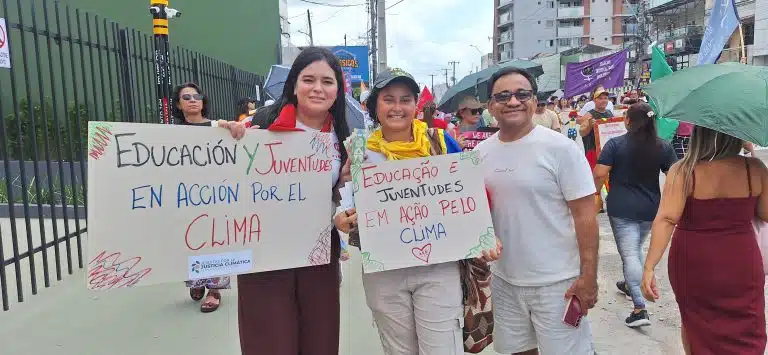 EDUCACIÓN Y JUVENTUDES
EN ACCIÓN POR EL
CLIMA
JUSTICIA CLIMÁTICA
EDUCAÇÃO E
JUVENTUDES
EM AÇÃO PELO
CLIMA